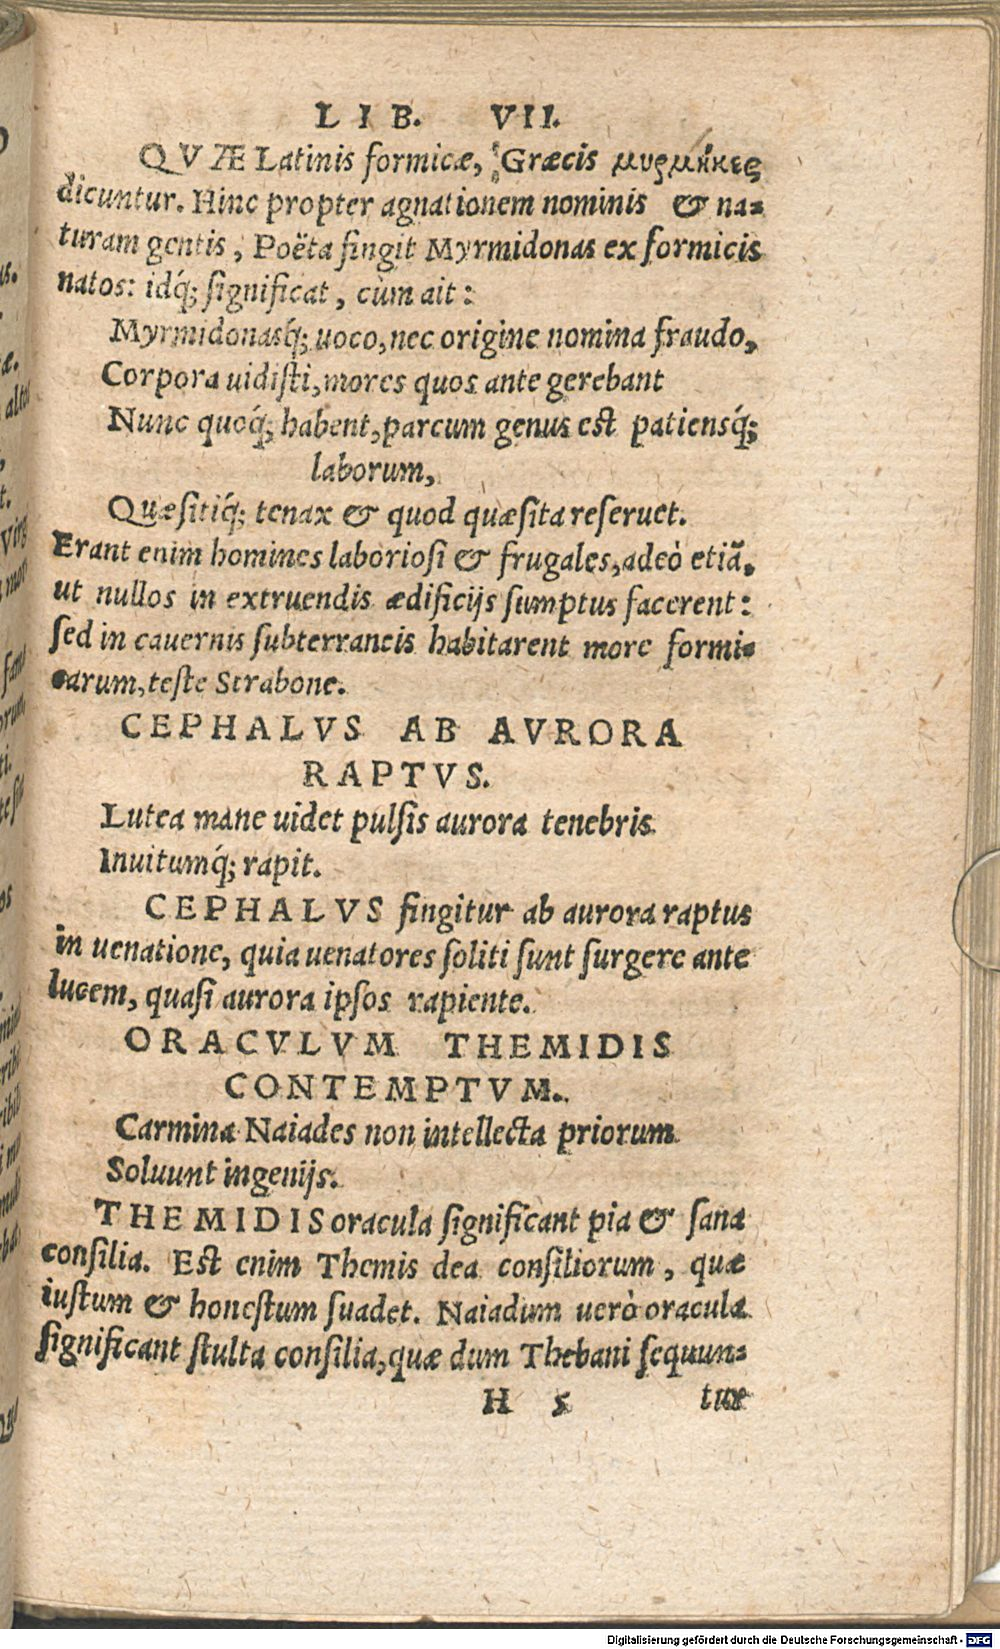 LIB. VII.
QVÆ Latinis formicæ, Græcis μυρμήκες
dicuntur. Hinc propter agnationem nominis & na-
turam gentis, Poëta fingit Myrmidonas ex formicis
natos: idq́; significat, cùm ait:
Myrmidonasq́; uoco, nec origine nomina fraudo,
Corpora uidisti, mores quos ante gerebant
Nunc quoq́; habent, parcum genus est patiensq́;
laborum,
Quæsitiq́; tenax & quod quæsita reseruet.
Erant enim homines laboriosi & frugales, adeò etiã,
ut nullos in extruendis ædificijs sumptus facerent:
sed in cauernis subterraneis habitarent more formi-
carum, teste Strabone.
CEPHALVS AB AVRORA
RAPTVS.
Lutea mane uidet pulsis aurora tenebris
Inuitumq́; rapit.
CEPHALVS fingitur ab aurora raptus
in uenatione, quia uenatores soliti sunt surgere ante
lucem, quasi aurora ipsos rapiente.
ORACVLVM THEMIDIS
CONTEMPTVM.
Carmina Naiades non intellecta priorum
Soluunt ingenijs.
THEMIDIS oracula significant pia & sana
consilia. Est enim Themis dea consiliorum, quæ
iustum & honestum suadet. Naiadum uerò oracula
significant stulta consilia, quæ dum Thebani sequun-
H 5 tur
Digitalisierung gefördert durch die Deutsche Forschungsgemeinschaft - DFG